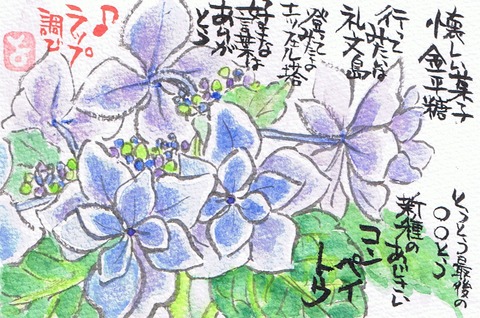 懐しい菓子
金平糖
行ってみたいな
礼文島
登ってみたよ
エッフェル塔
好きな
言葉は
ありが
とう
♪ラップ
調で
とうとう最後の
○○とう
新種の
あじさい
コン
ペイ
トウ